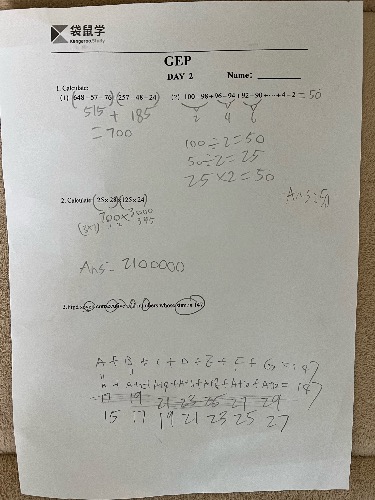 袋鼠学
Kangaroo Study
GEP
DAY 2 Name:
1. Calculate:
(1) (648-57-76)(257-48-24) (2) 100-98+96-94+92-90+…+4-2 = 50
515 + 185 2 4 6
= 700
100÷2=50
50÷2=25
25×2=50
Ans=50
2. Calculate (25×28)(125×24)
700×3000
Ans= 2100000
3. Find seven consecutive odd numbers whose sum is 147.
A + B + C + D + E + F + G = 147
17 19 21 23 25 27 29
15 17 19 21 23 25 27